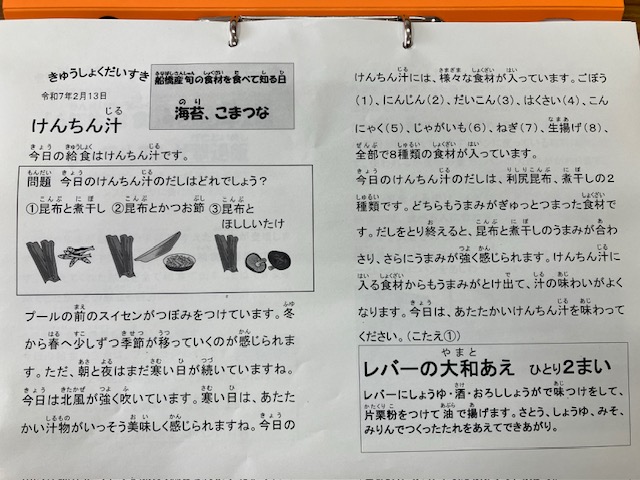 きゅうしょくだいすき
令和7年2月13日
船橋産旬の食材を食べて知る日
海苔、こまつな
けんちん汁
今日の給食はけんちん汁です。
問題　今日のけんちん汁のだしはどれでしょう?
①昆布と煮干し ②昆布とかつお節 ③昆布と
ほししいたけ
プールの前のスイセンがつぼみをつけています。冬
から春へ少しずつ季節が移っていくのが感じられま
す。ただ、朝と夜はまだ寒い日が続いていますね。
今日は北風が強く吹いています。寒い日は、あたた
かい汁物がいっそう美味しく感じられますね。今日の
けんちん汁には、様々な食材が入っています。ごぼう
(1)、にんじん(2)、だいこん(3)、はくさい(4)、こん
にゃく(5)、じゃがいも(6)、ねぎ(7)、生揚げ(8)、
全部で8種類の食材が入っています。
今日のけんちん汁のだしは、利尻昆布、煮干しの2
種類です。どちらもうまみがぎゅっとつまった食材で
す。だしをとり終えると、昆布と煮干しのうまみが合わ
さり、さらにうまみが強く感じられます。けんちん汁に
入る食材からもうまみがとけ出て、汁の味わいがよく
なります。今日は、あたたかいけんちん汁を味わって
ください。(こたえ①)
レバーの大和あえ　ひとり2まい
レバーにしょうゆ・酒・おろししょうがで味つけをして、
片栗粉をつけて油で揚げます。さとう、しょうゆ、みそ、
みりんでつくったたれをあえてできあがり。